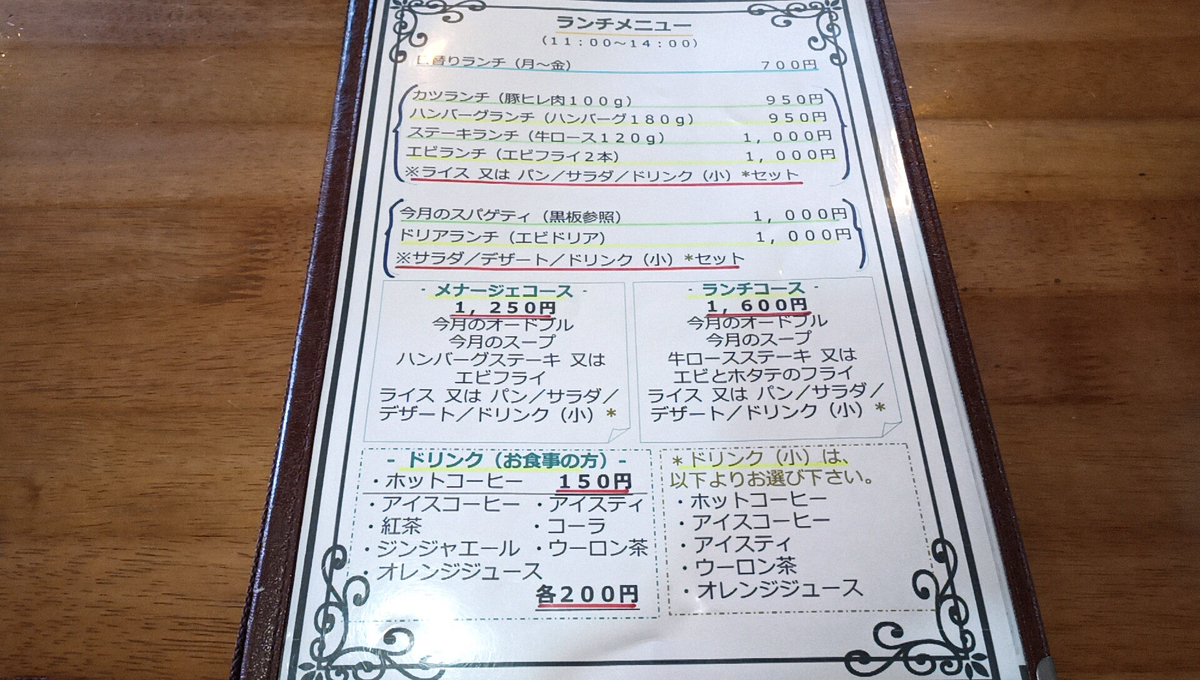 ランチメニュー
(11:00~14:00)
替りランチ(月~金) 700円
カツランチ(豚ヒレ肉100g) 950円
ハンバーグランチ(ハンバーグ180g) 950円
ステーキランチ(牛ロース120g) 1,000円
エビランチ(エビフライ2本) 1,000円
※ライス 又は パン/サラダ/ドリンク(小)*セット
今月のスパゲティ(黒板参照) 1,000円
ドリアランチ(エビドリア) 1,000円
※サラダ/デザート/ドリンク(小)*セット
- メナージェコース -
1,250円
今月のオードブル
今月のスープ
ハンバーグステーキ 又は
エビフライ
ライス 又は パン/サラダ/
デザート/ドリンク(小)*
- ランチコース -
1,600円
今月のオードブル
今月のスープ
牛ロースステーキ 又は
エビとホタテのフライ
ライス 又は パン/サラダ/
デザート/ドリンク(小)*
- ドリンク(お食事の方)-
・ホットコーヒー 150円
・アイスコーヒー ・アイスティ
・紅茶 ・コーラ
・ジンジャエール ・ウーロン茶
・オレンジジュース
各200円
*ドリンク(小)は、
以下よりお選び下さい。
・ホットコーヒー
・アイスコーヒー
・アイスティ
・ウーロン茶
・オレンジジュース